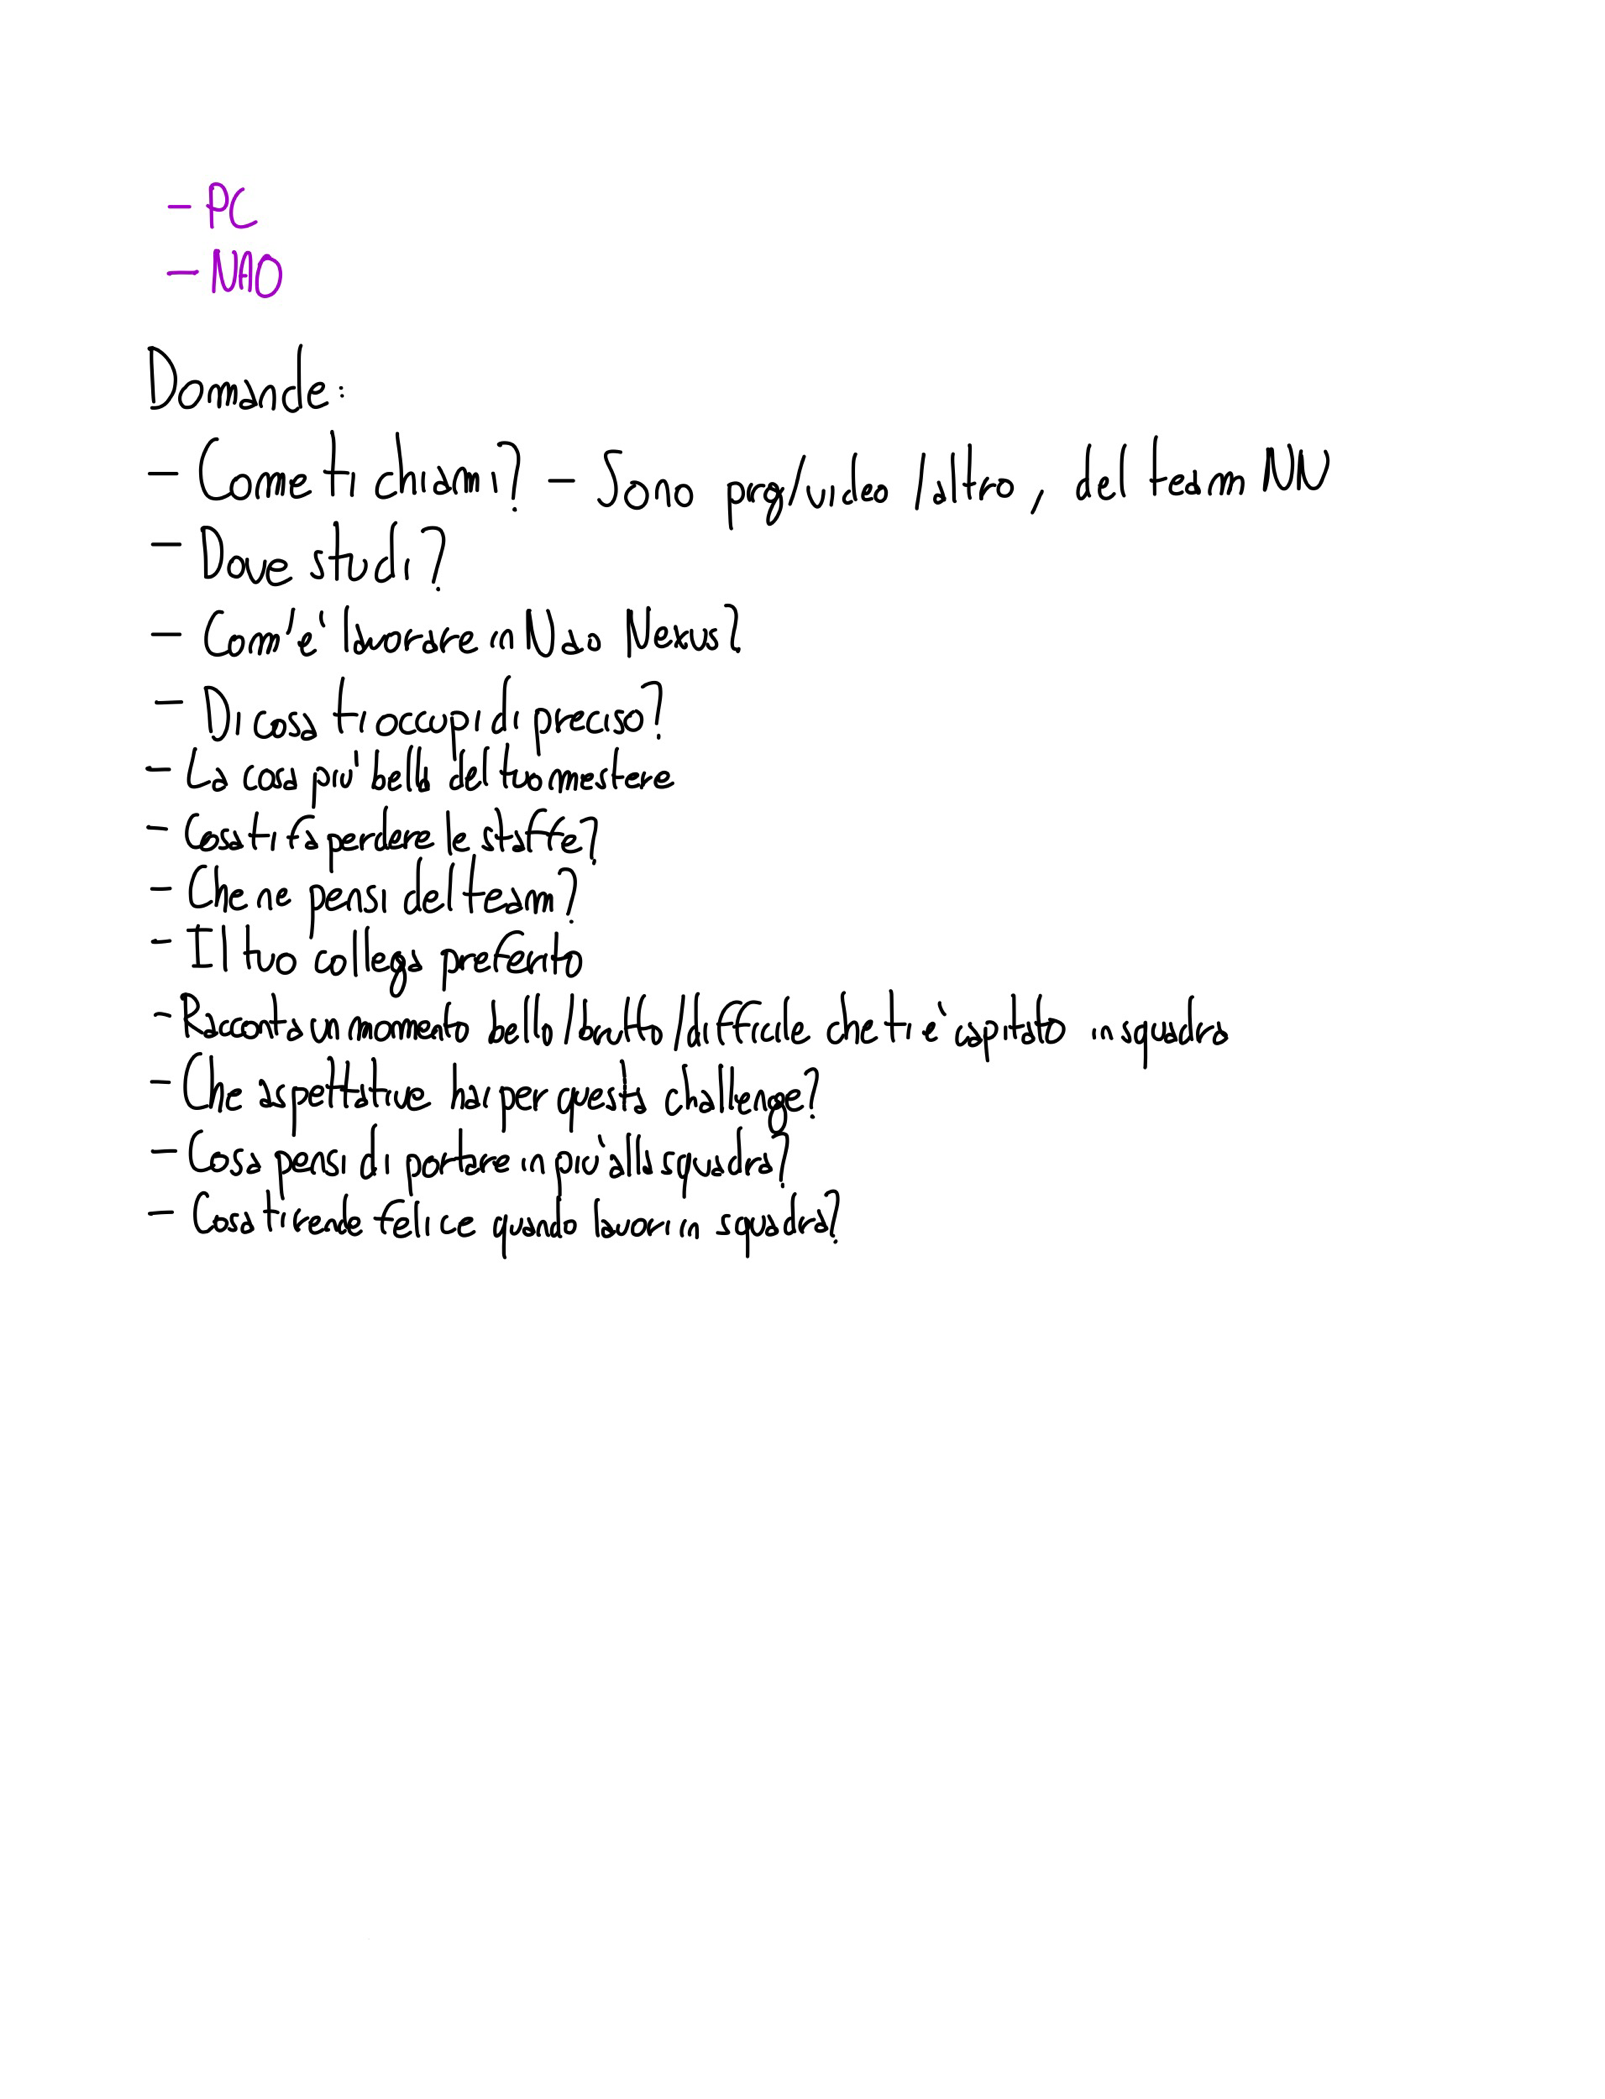 - PC
- NAO
Domande:
- Come ti chiami? - Sono prg/video/altro, del team NN
- Dove studi?
- Com'e' lavorare in Nao Nexus?
- Di cosa ti occupi di preciso?
- La cosa piu' bella del tuo mestere
- Cosa ti fa perdere le staffe?
- Che ne pensi del team?
- Il tuo collega preferito
- Racconta un momento bello/brutto/difficile che ti e' capitato in squadra
- Che aspettative hai per questa challenge?
- Cosa pensi di portare in piu' alla squadra?
- Cosa ti rende felice quando lavori in squadra?